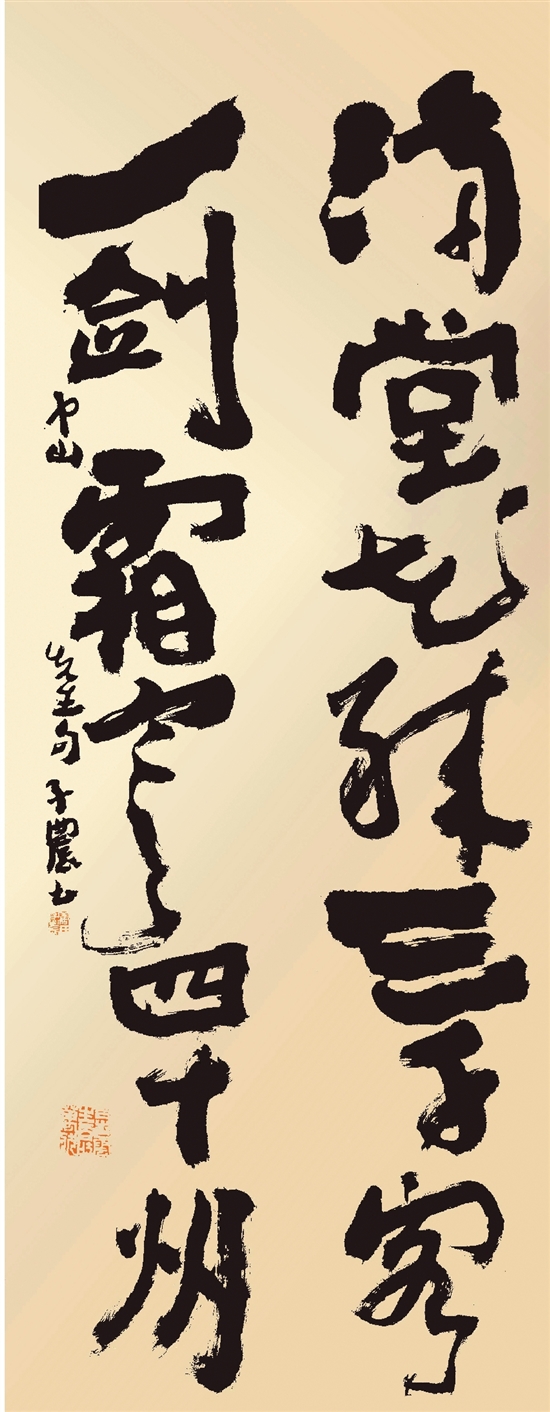 满堂花醉三千客
一剑霜寒四十州
中山先生句 子農书